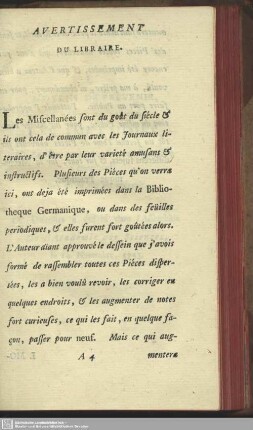 AVERTISSEMENT
DU LIBRAIRE.
Les Miſcellanées ſont du goût du ſiècle &
ils ont cela de commun avec les Journaux li-
teraires, d'être par leur varieté amuſans &
inſtructifs. Pluſieurs des Pièces qu'on verra
ici, ont deja été imprimées dans la Biblio-
theque Germanique, ou dans des feüilles
periodiques, & elles furent fort goûtées alors.
L'Auteur aiant approuvé le deſſein que j'avois
formé de raſſembler toutes ces Pièces diſper-
ſées, les a bien voulû revoir, les corriger en
quelques endroits, & les augmenter de notes
fort curieuſes, ce qui les fait, en quelque fa-
çon, paſſer pour neuf. Mais ce qui aug-
A 4 mentera